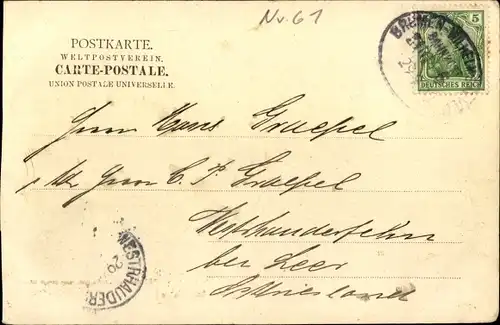 Nv. 61
POSTKARTE.
WELTPOSTVEREIN.
CARTE-POSTALE.
UNION POSTALE UNIVERSELLE.
5
DEUTSCHES REICH
BREMEN
Herrn Hans Graepel
Herrn C. P. Graepel
Westrhauderfehn
bei Leer
Ostfriesland
WESTRHAUDER